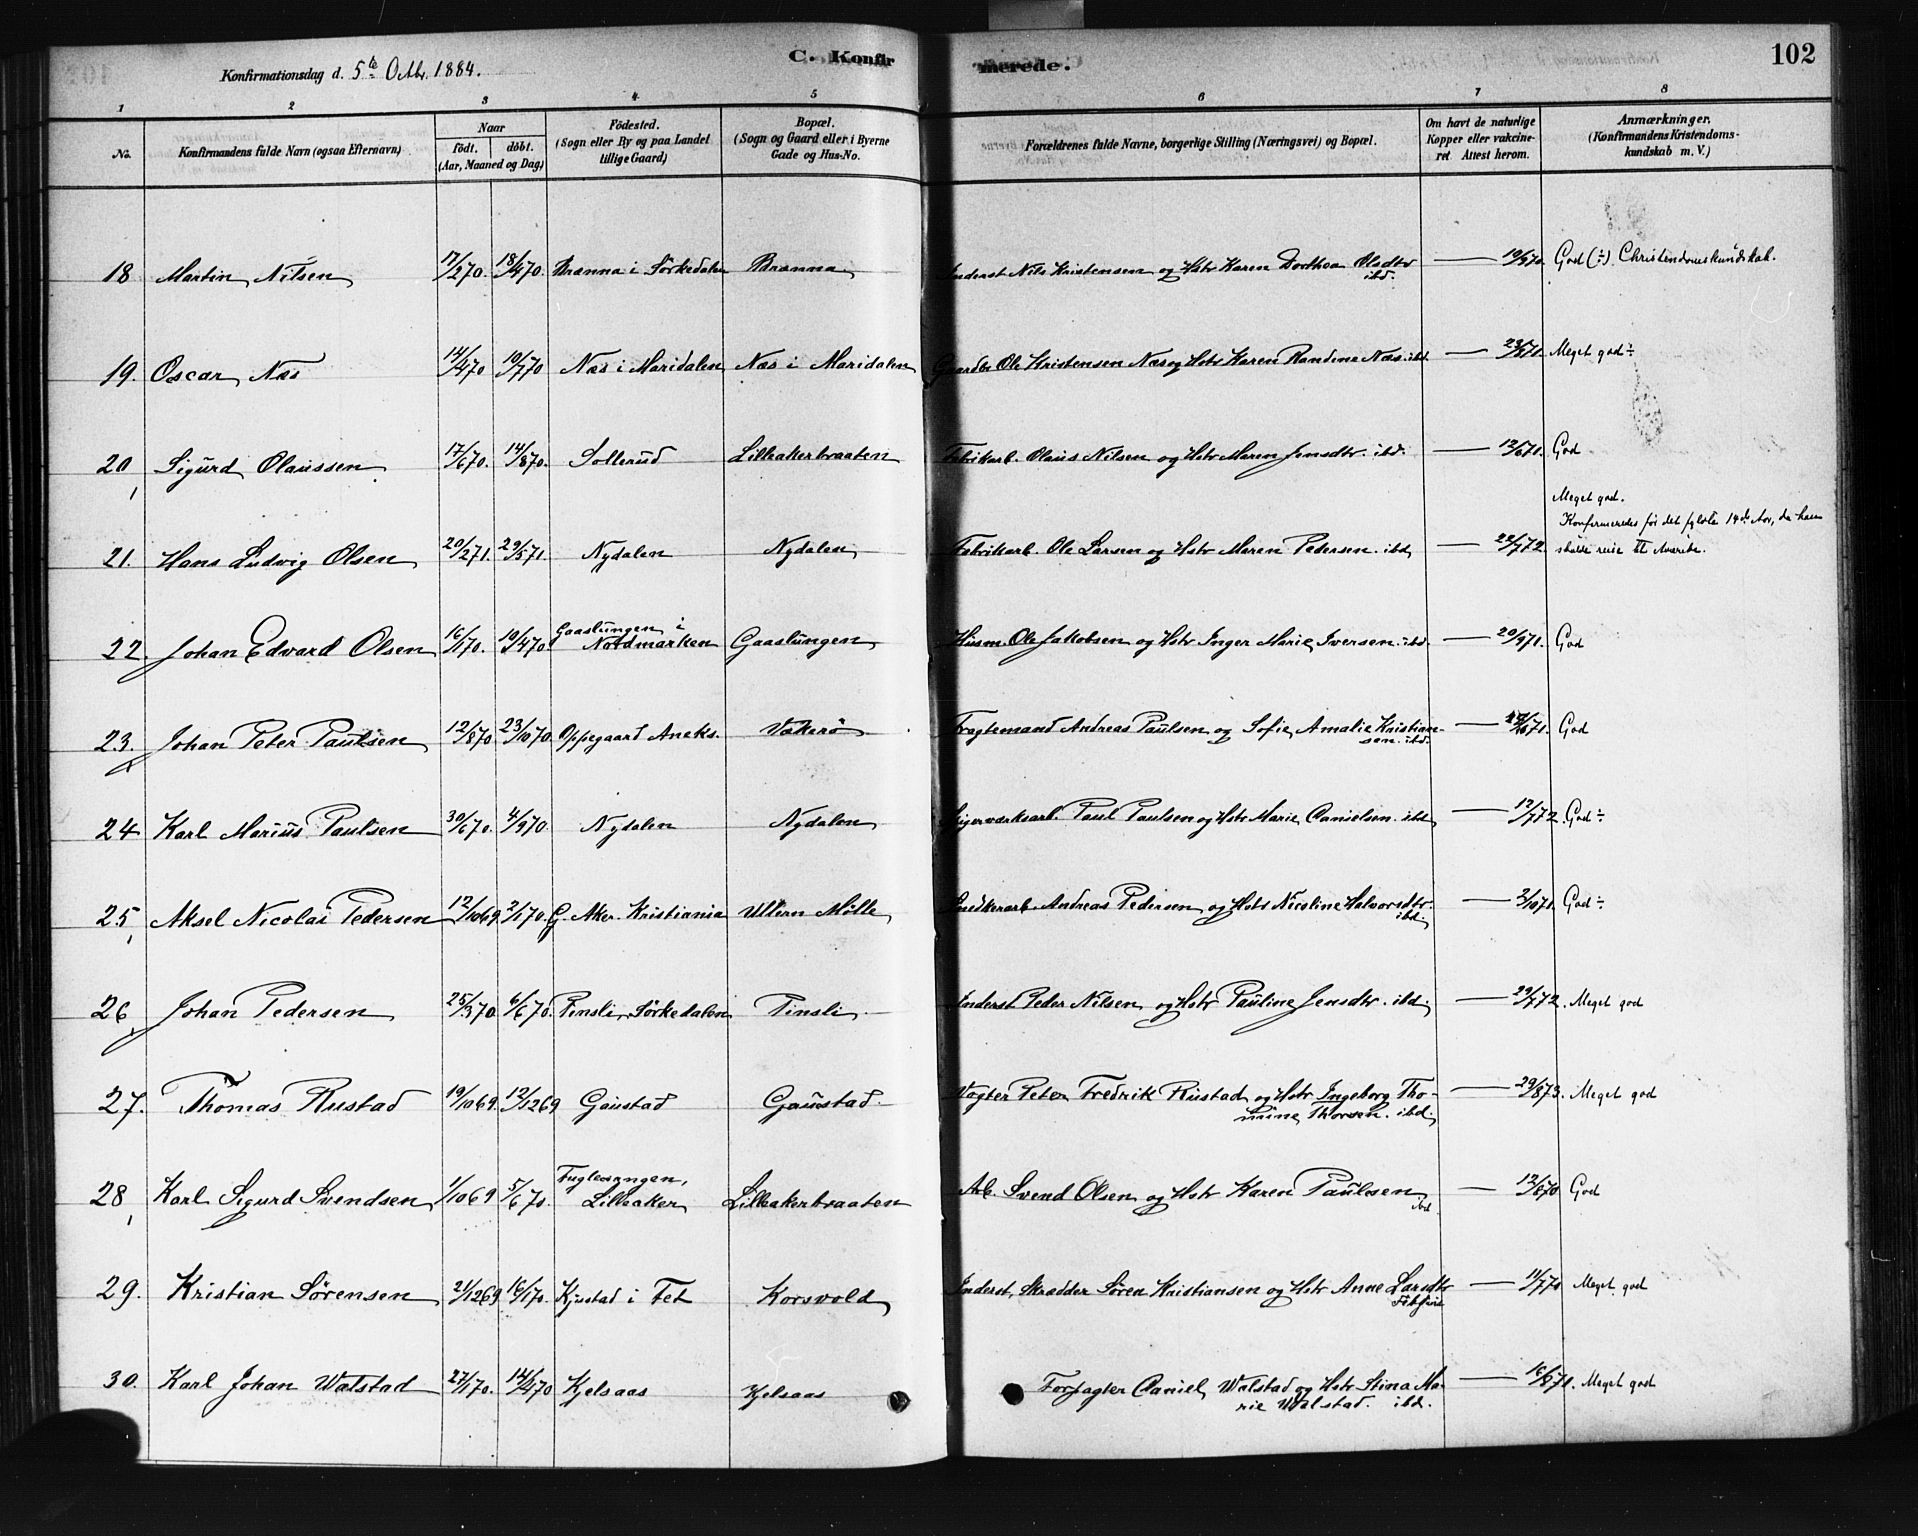 Konfirmationsdag d. 5te Octbr. 1884. C. Konfirmerede. 102
1 2 3 4 5 6 7 8
No. Konfirmandens fulde Navn (ogsaa Efternavn) Naar födt. döbt. (Aar, Maaned og Dag) Födested. (Sogn eller By og paa Landet tillige Gaard) Bopæl. (Sogn og Gaard eller i Byerne Gade og Hus-No. Forældrenes fulde Navne, borgerlige Stilling (Næringsvei) og Bopæl. Om havt de naturlige Kopper eller vakcineret Attest herom. Anmærkninger. (Konfirmandens Kristendomskundskab m. V.)
18 Martin Nilsen 17/270. 18/470. Brænna i Sörkedalen Brænna Inderst Nils Kristensen og Hstr Karen Dorthea Olsdtr ibd. — 19/970. God (÷) Christendomskundskab.
19. Oscar Næs 14/470 10/770 Næs i Maridalen Næs i Maridalen Gaardbr Ole Kristensen Næs og Hstr Karen Randine Næs ibd — Meget god ÷
20 Sigurd Olaussen 17/670. 14/870. Sollerud Lilleakerbraaten Fabrikarb. Olaus Nilsen og Hstr Maren Jensdtr. ibd. — 12/671. God
21. Hans Ludvig Olsen 20/271. 29/571. Nydalen Nydalen Fabrikarb. Ole Larsen og Hstr Maren Pedersen ibd — 22/772. Meget god. Konfirmeredes før det fyldte 14de Aar, da han skulde reise til Amerika.
22. Johan Edvard Olsen 16/170. 10/470. Gaaslungen i Nordmarken Gaaslungen Husm. Ole Jakobsen og Hstr Inger Marie Iversen ibd. — 20/971. God
23. Johan Peter Paulsen 12/870 23/1070. Oppegaard Aneks. Vækerö Fragtemand Andreas Paulsen og Sofie Amalie Kristiansen ibd. — God
24 Karl Marius Paulsen 30/670. 4/970. Nydalen Nydalen Spigerværksarb. Paul Paulsen og Hstr Marie Danielsen ibd — 12/772. God ÷
25, Aksel Nicolai Pedersen 12/1069 2/170. G. Aker. Kristiania Ullern Mölle Snedkerarb. Andreas Pedersen og Hstr Nicoline Halvorsdtr. ibd. — 2/1071. God ÷
26 Johan Pedersen 25/370. 6/670. Pinsli, Sörkedalen Pinsli Inderst Peder Nilsen og Hstr Pauline Jensdtr. ibd. — 29/772. Meget god
27. Thomas Rustad 19/1069. 12/1269 Gaustad Gaustad Vogter Peter Fredrik Rustad og Hstr Ingeborg Thomine Thorsen. ibd. — 29/873. Meget god
28, Karl Sigurd Svendsen 1/1069 5/670. Fuglesangen, Lilleaker Lilleakerbraaten Arb. Svend Olsen og Hstr Karen Paulsen ibd — God
29. Kristian Sørensen 21/1269 16/170. Kjustad i Fet Korsvold Inderst, Skrædder Søren Kristiansen og Hstr Anne Larsdtr — 11/770 Meget god
30. Karl Johan Walstad 27/170. 14/470 Kjelsaas Kjelsaas Forpagter Daniel Walstad og Hstr Stina Marie Walstad. ibd. — 16/871. Meget god